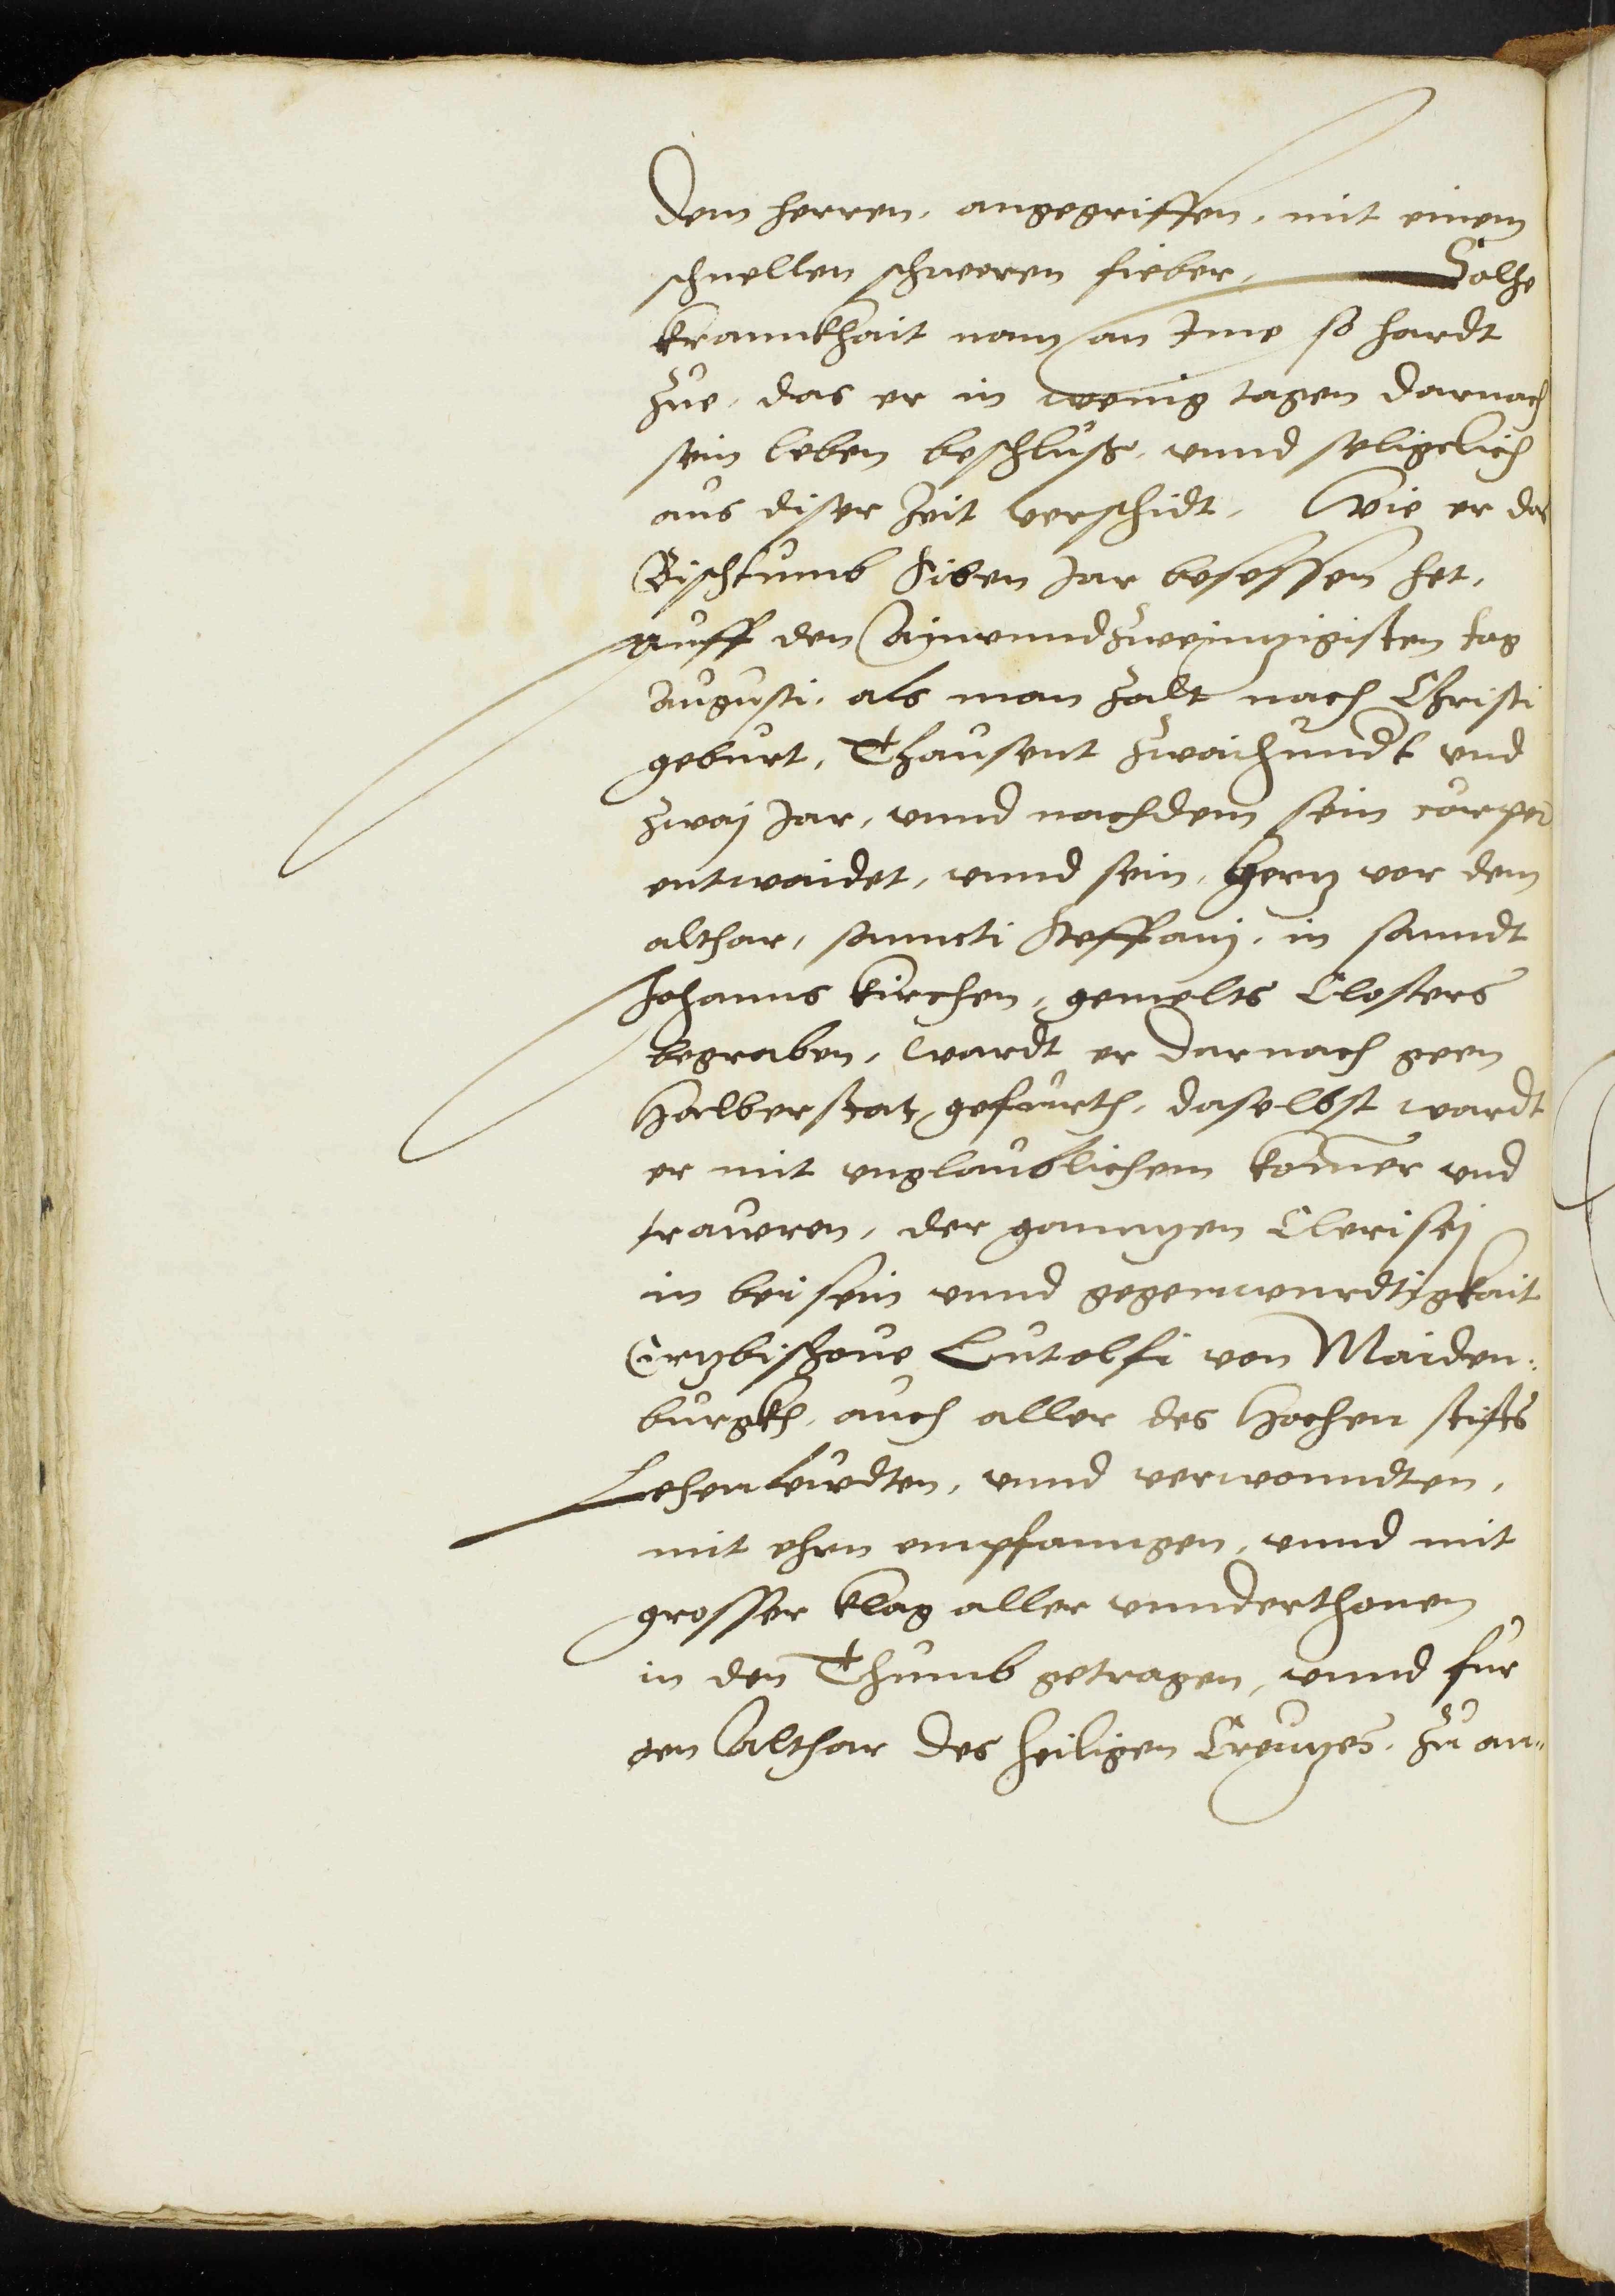 dem herren, angegriffen, mit einem
schnellen schweren fieber, Solhe
krannkhait nam an Ime so hardt
zue, das er in wenig tagen darnach
sein leben beschluß, vnnd seligclich
aus diser Zeit verschidt, Wie er das
Bischtumb siben Jar besessen het,
auff den Ainvnndzweintzigisten tag
augusti, als man zalt nach Christi
geburt, Thausent zwaihundt vnd
zwaj Jar, vnnd nachdem sein cörper
entwaidet, vnnd sein, Hertz vor dem
althar, sanncti Steffanj, in sanndt
Johanns kirchen, gemelts Closters
begraben, Wardt er darnach geen
Halberstatt gefürth, daselbst wardt
er mit vnglaublichem komer vnd
traweren, der ganntzen Clerisej
in bei sein vnnd gegenwurdtigkait
Ertzbischoue Lutolfi von Maiden:
burgkh, auch aller des Hochen stiffts
Lehenleudten, vnnd verwonndten,
mit ehrn empfanngen, vnnd mit
grosser klag aller vnnderthonen
in den Thumb getragen, vnnd für
den Althar des heiligen Creutzes, zu an„